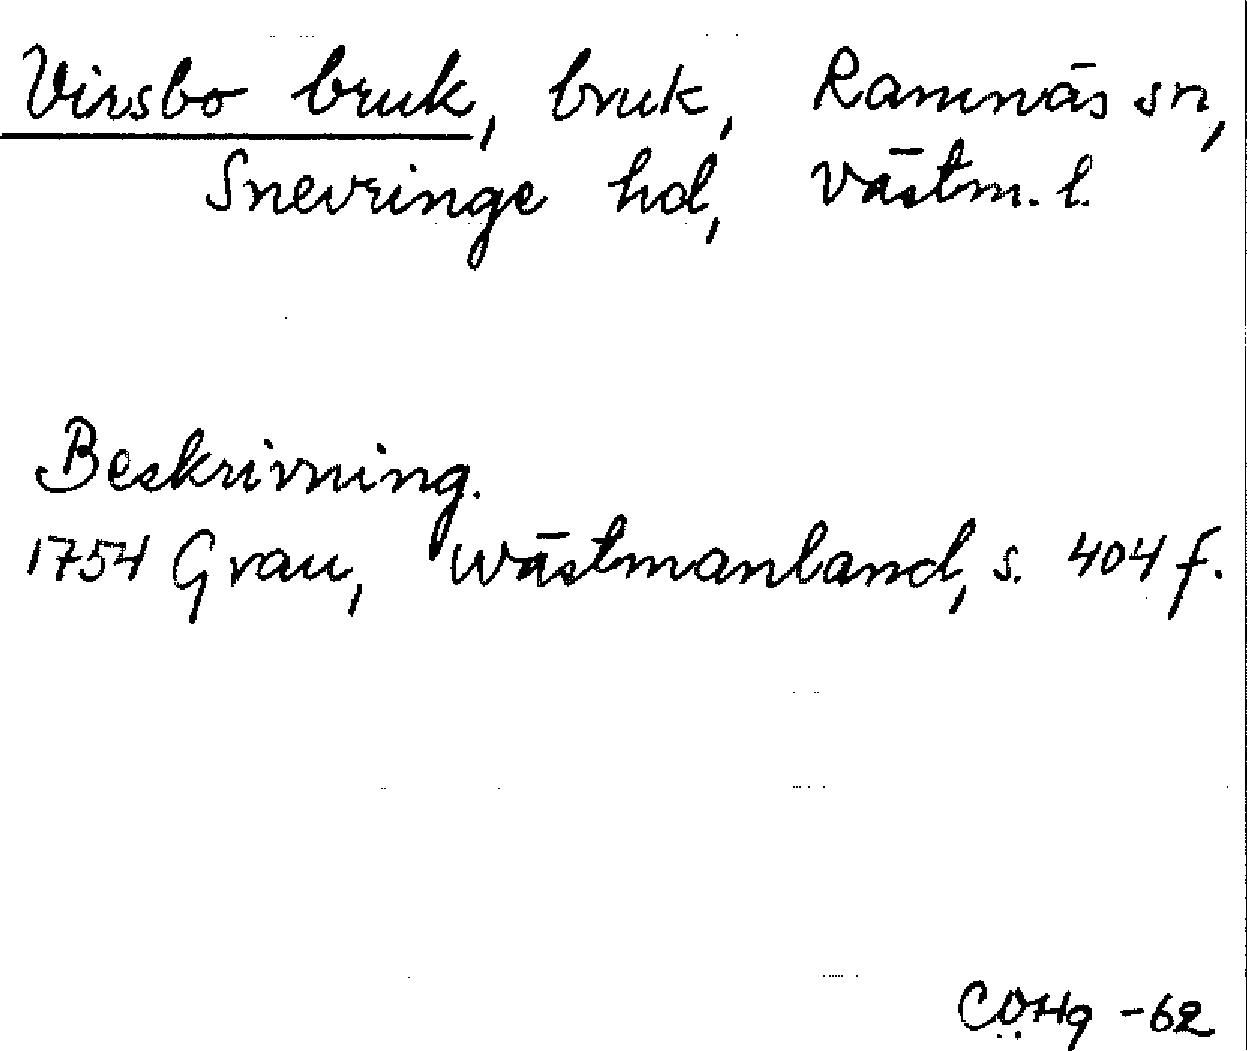 Virsbo bruk, bruk, Ramnäs sn,
Snevringe hd, Västm. l.
Beskrivning.
1754 Grau, Wästmanland, s. 404 f.
CÖHg -62